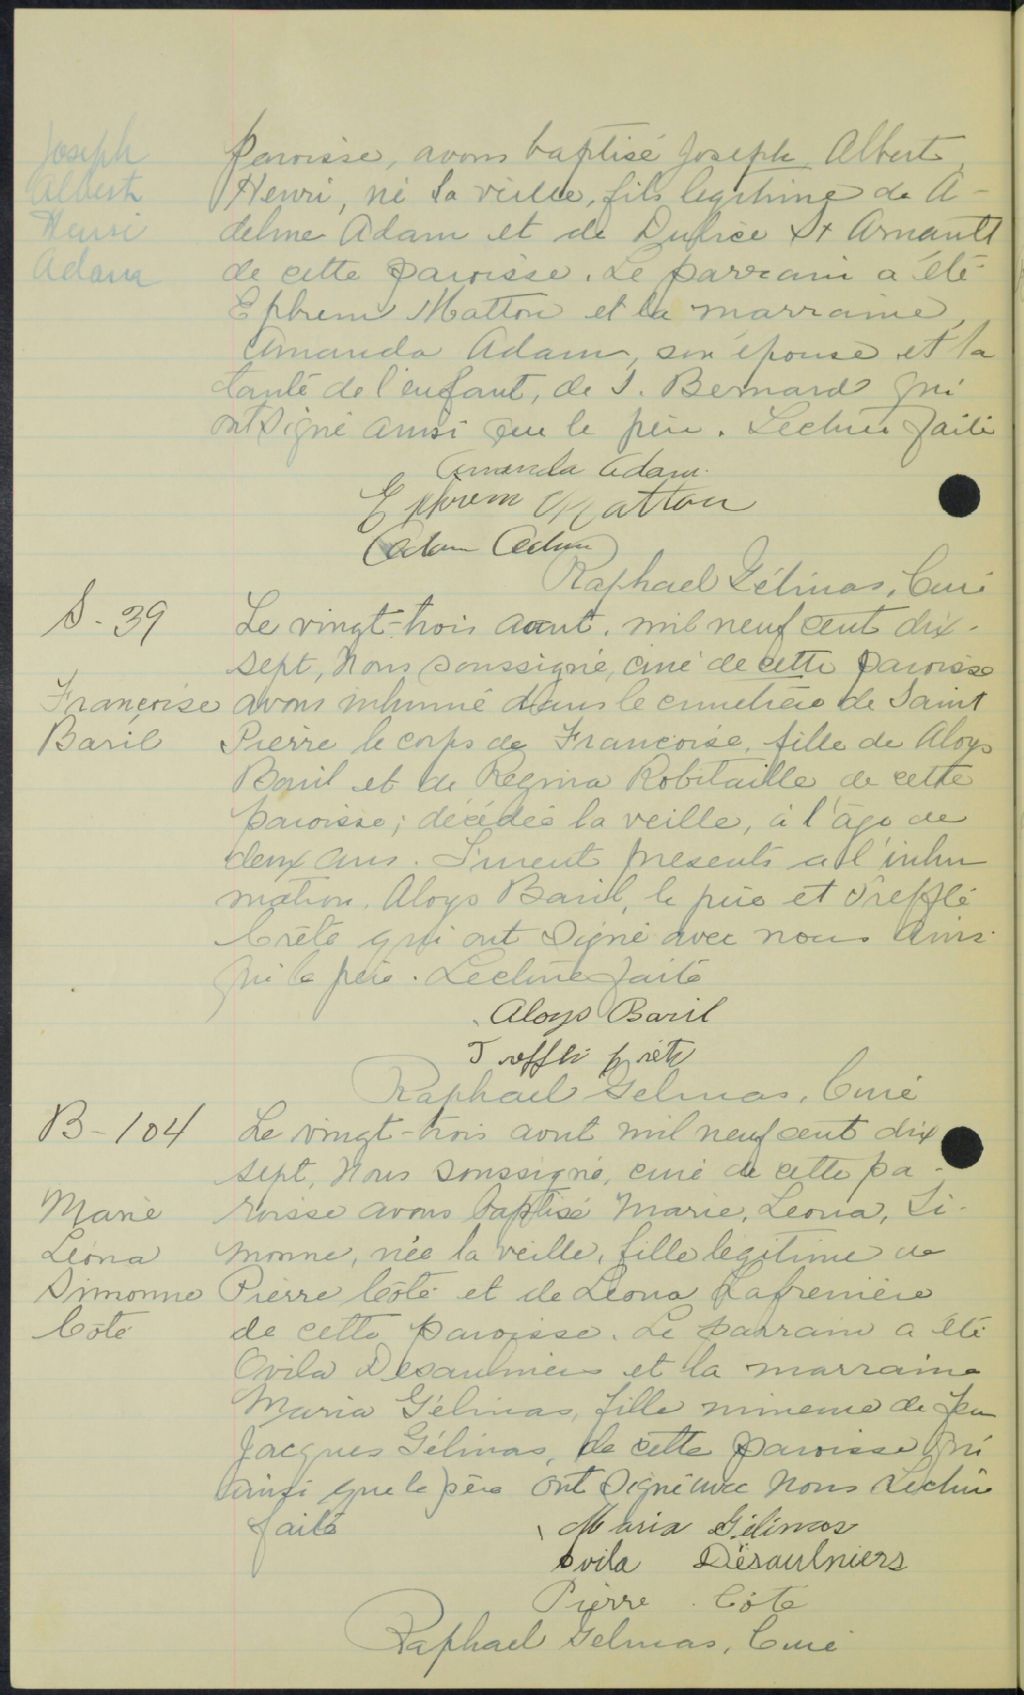 Joseph
Albert
Henri
Adam
paroisse, avons baptisé Joseph Albert,
Henri, né la veille, fils legitime de A-
delme Adam et de Dulrice St Arnault
de cette paroisse. Le parrain a été
Ephrem Matton et la marraine,
Amanda Adam, son épouse et la
tante de l'enfant, de S. Bernard qui
ont signé ainsi que le père. Lecture faite
Amanda Adam.
Ephrem Matton
Adam
Raphael Gélinas, Curé
S - 39
Françoise
Baril
Le vingt-trois aout, mil neuf cent dix-
sept, Nous soussigné, curé de cette paroisse
avons inhumé dans le cimetière de Saint
Pierre le corps de Francoise, fille de Aloys
Baril et de Regina Robitaille de cette
paroisse; décédée la veille, à l'âge de
deux ans. Furent presents a l'inhu
mation, Aloys Baril, le père et Trefflé
Crête qui ont signé avec nous ains
que le père. Lecture faite
Aloys Baril
Trefflé Crête
Raphael Gelinas, Curé
B - 104
Marie
Léona
Simonne
Côté
Le vingt-trois aout mil neuf cent dix
sept, Nous soussigné, curé de cette pa-
roisse avons baptisé Marie, Leona, Si-
monne, née la veille, fille legitime de
Pierre Côté et de Léona Lafrenière
de cette paroisse. Le parrain a été
Ovila Desaulniers et la marraine
Maria Gélinas, fille mineure de feu
Jacques Gélinas, de cette paroisse qui
ainsi que le père ont signé avec Nous Lecture
faite
Maria Gélinas
Ovila Désaulniers
Pierre Côté
Raphael Gelinas, Curé